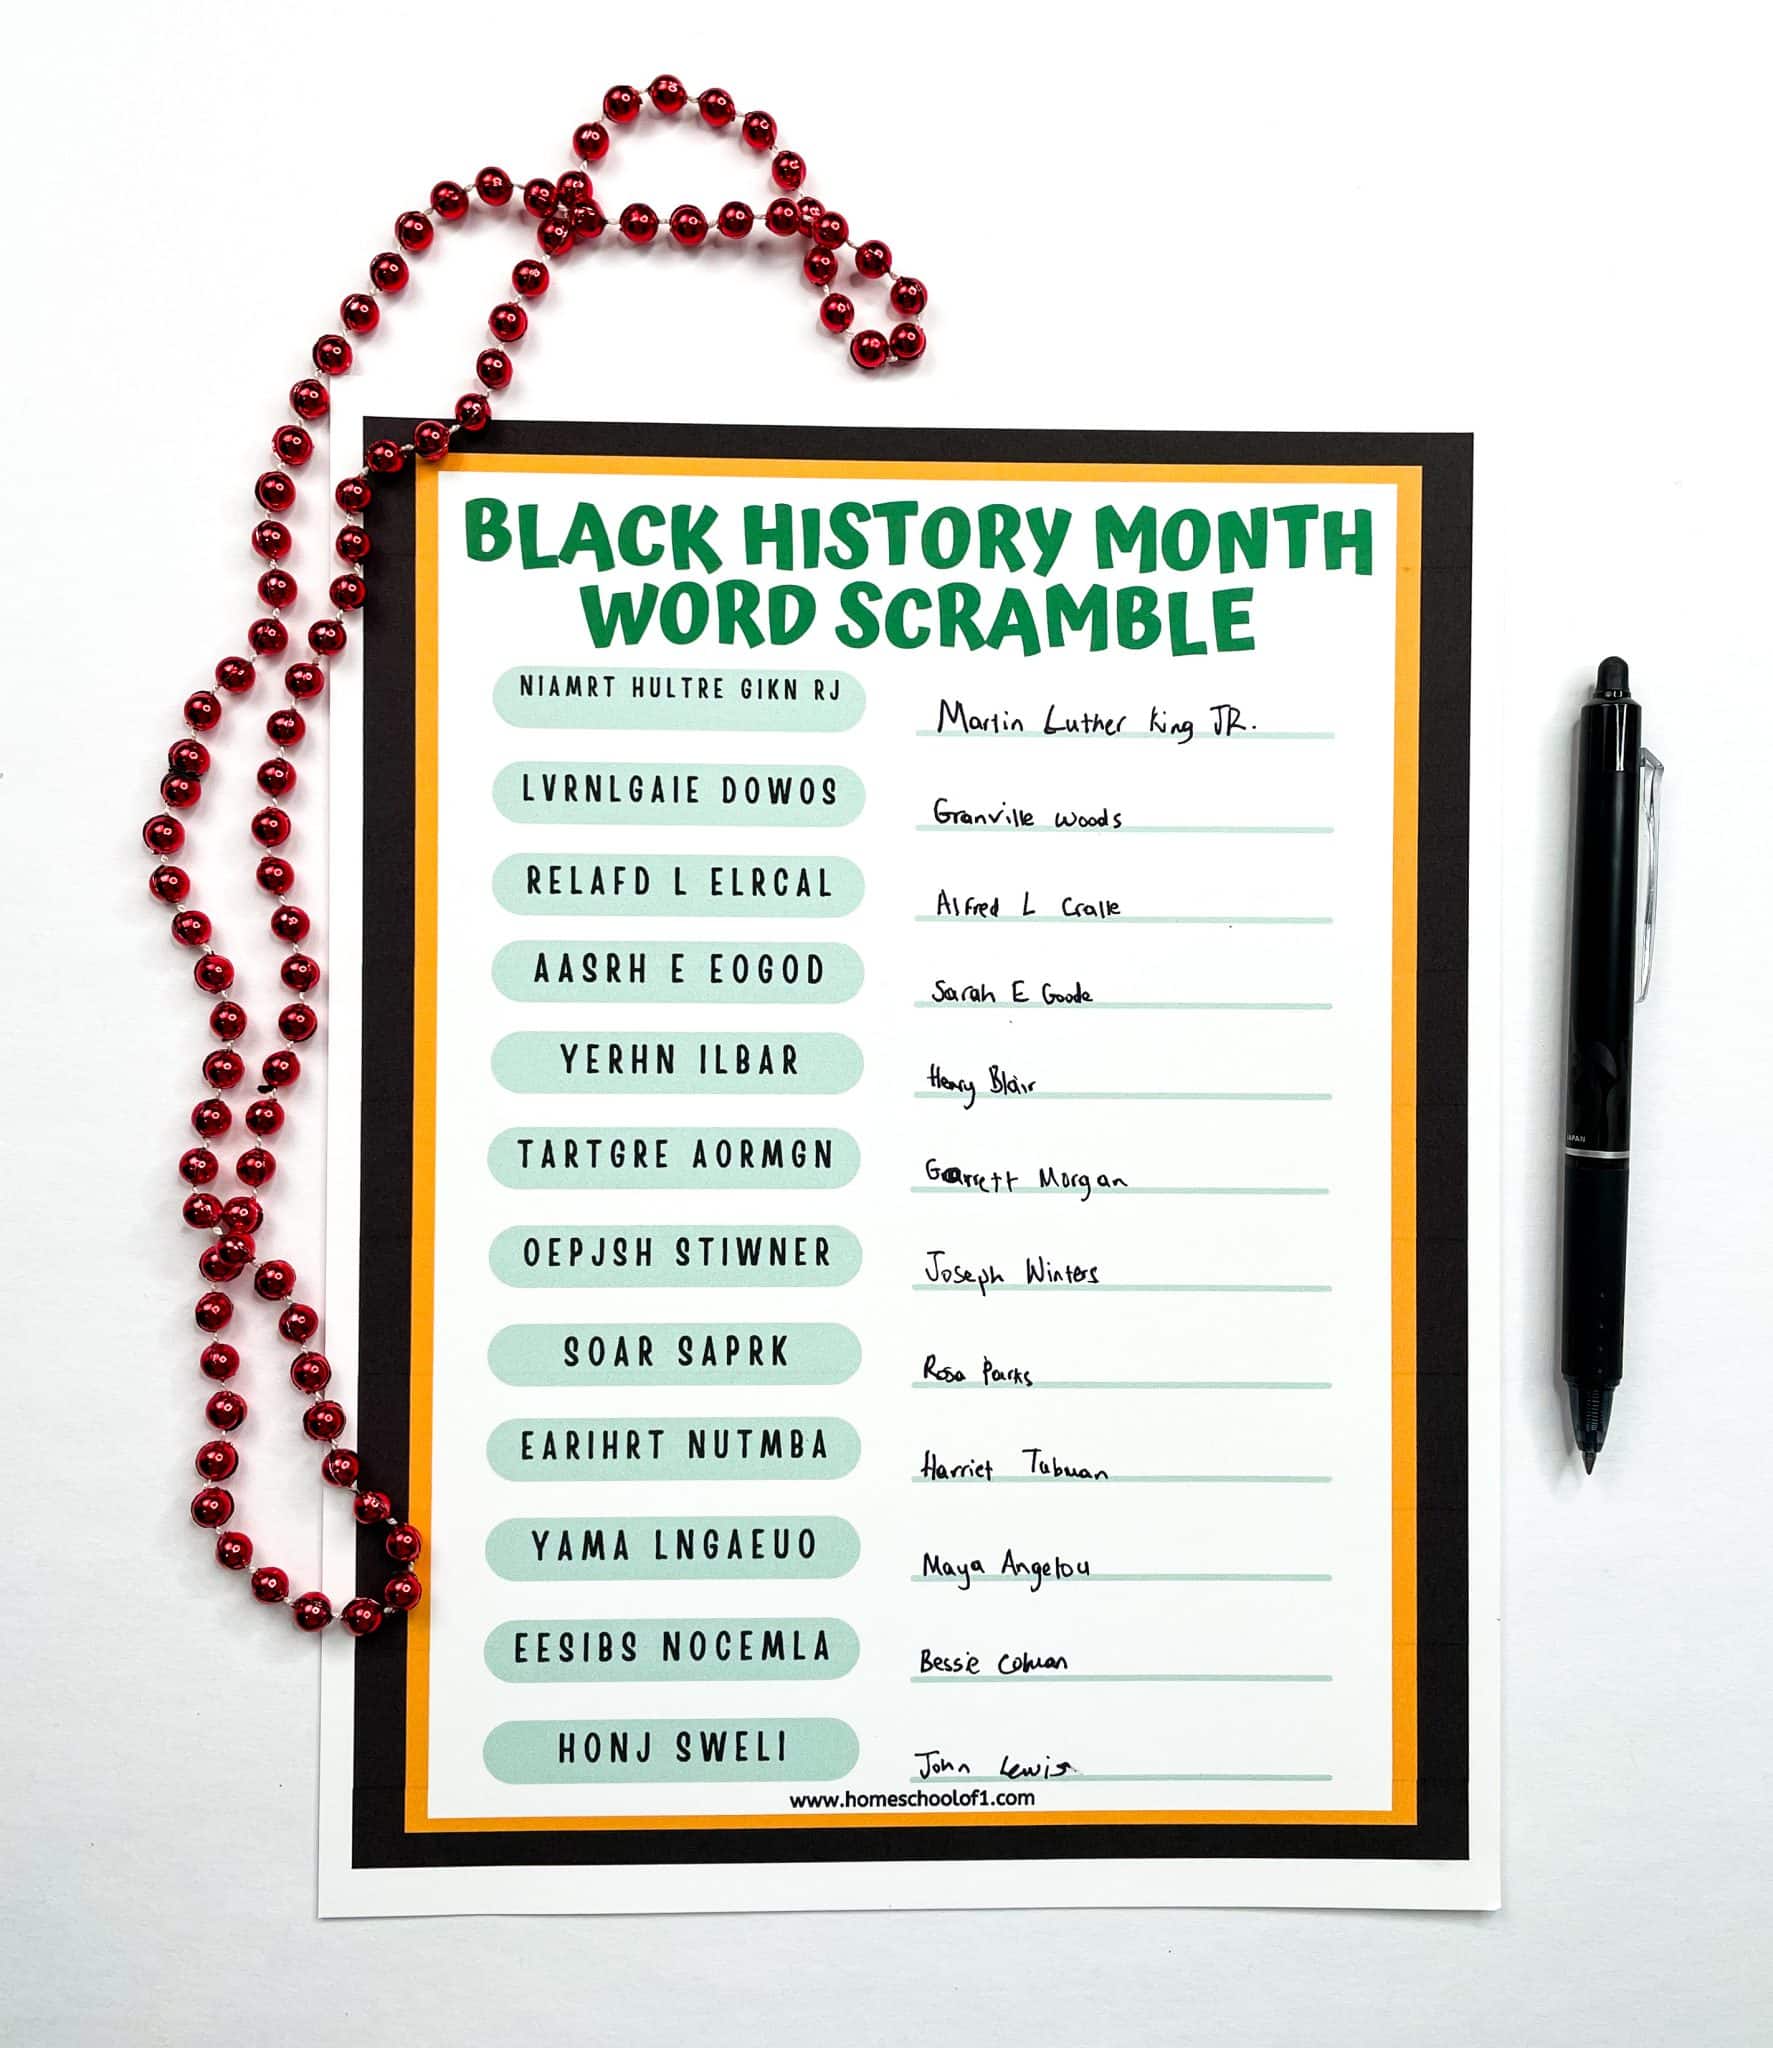 BLACK HISTORY MONTH
WORD SCRAMBLE
NIAMRT HULTRE GIKN RJ
Martin Luther King JR.
LVRNLGAIE DOWOS
Granville Woods
RELAFD L ELRCAL
Alfred L Cralle
AASRH E EOGOD
Sarah E Goode
YERHN ILBAR
Henry Blair
TARTGRE AORMGN
Garrett Morgan
OEPJSH STIWNER
Joseph Winters
SOAR SAPRK
Rosa Parks
EARIHRT NUTMBA
Harriet Tubman
YAMA LNGAEUO
Maya Angelou
EESIBS NOCEMLA
Bessie Coleman
HONJ SWELI
John Lewis
www.homeschoolof1.com
JAPAN